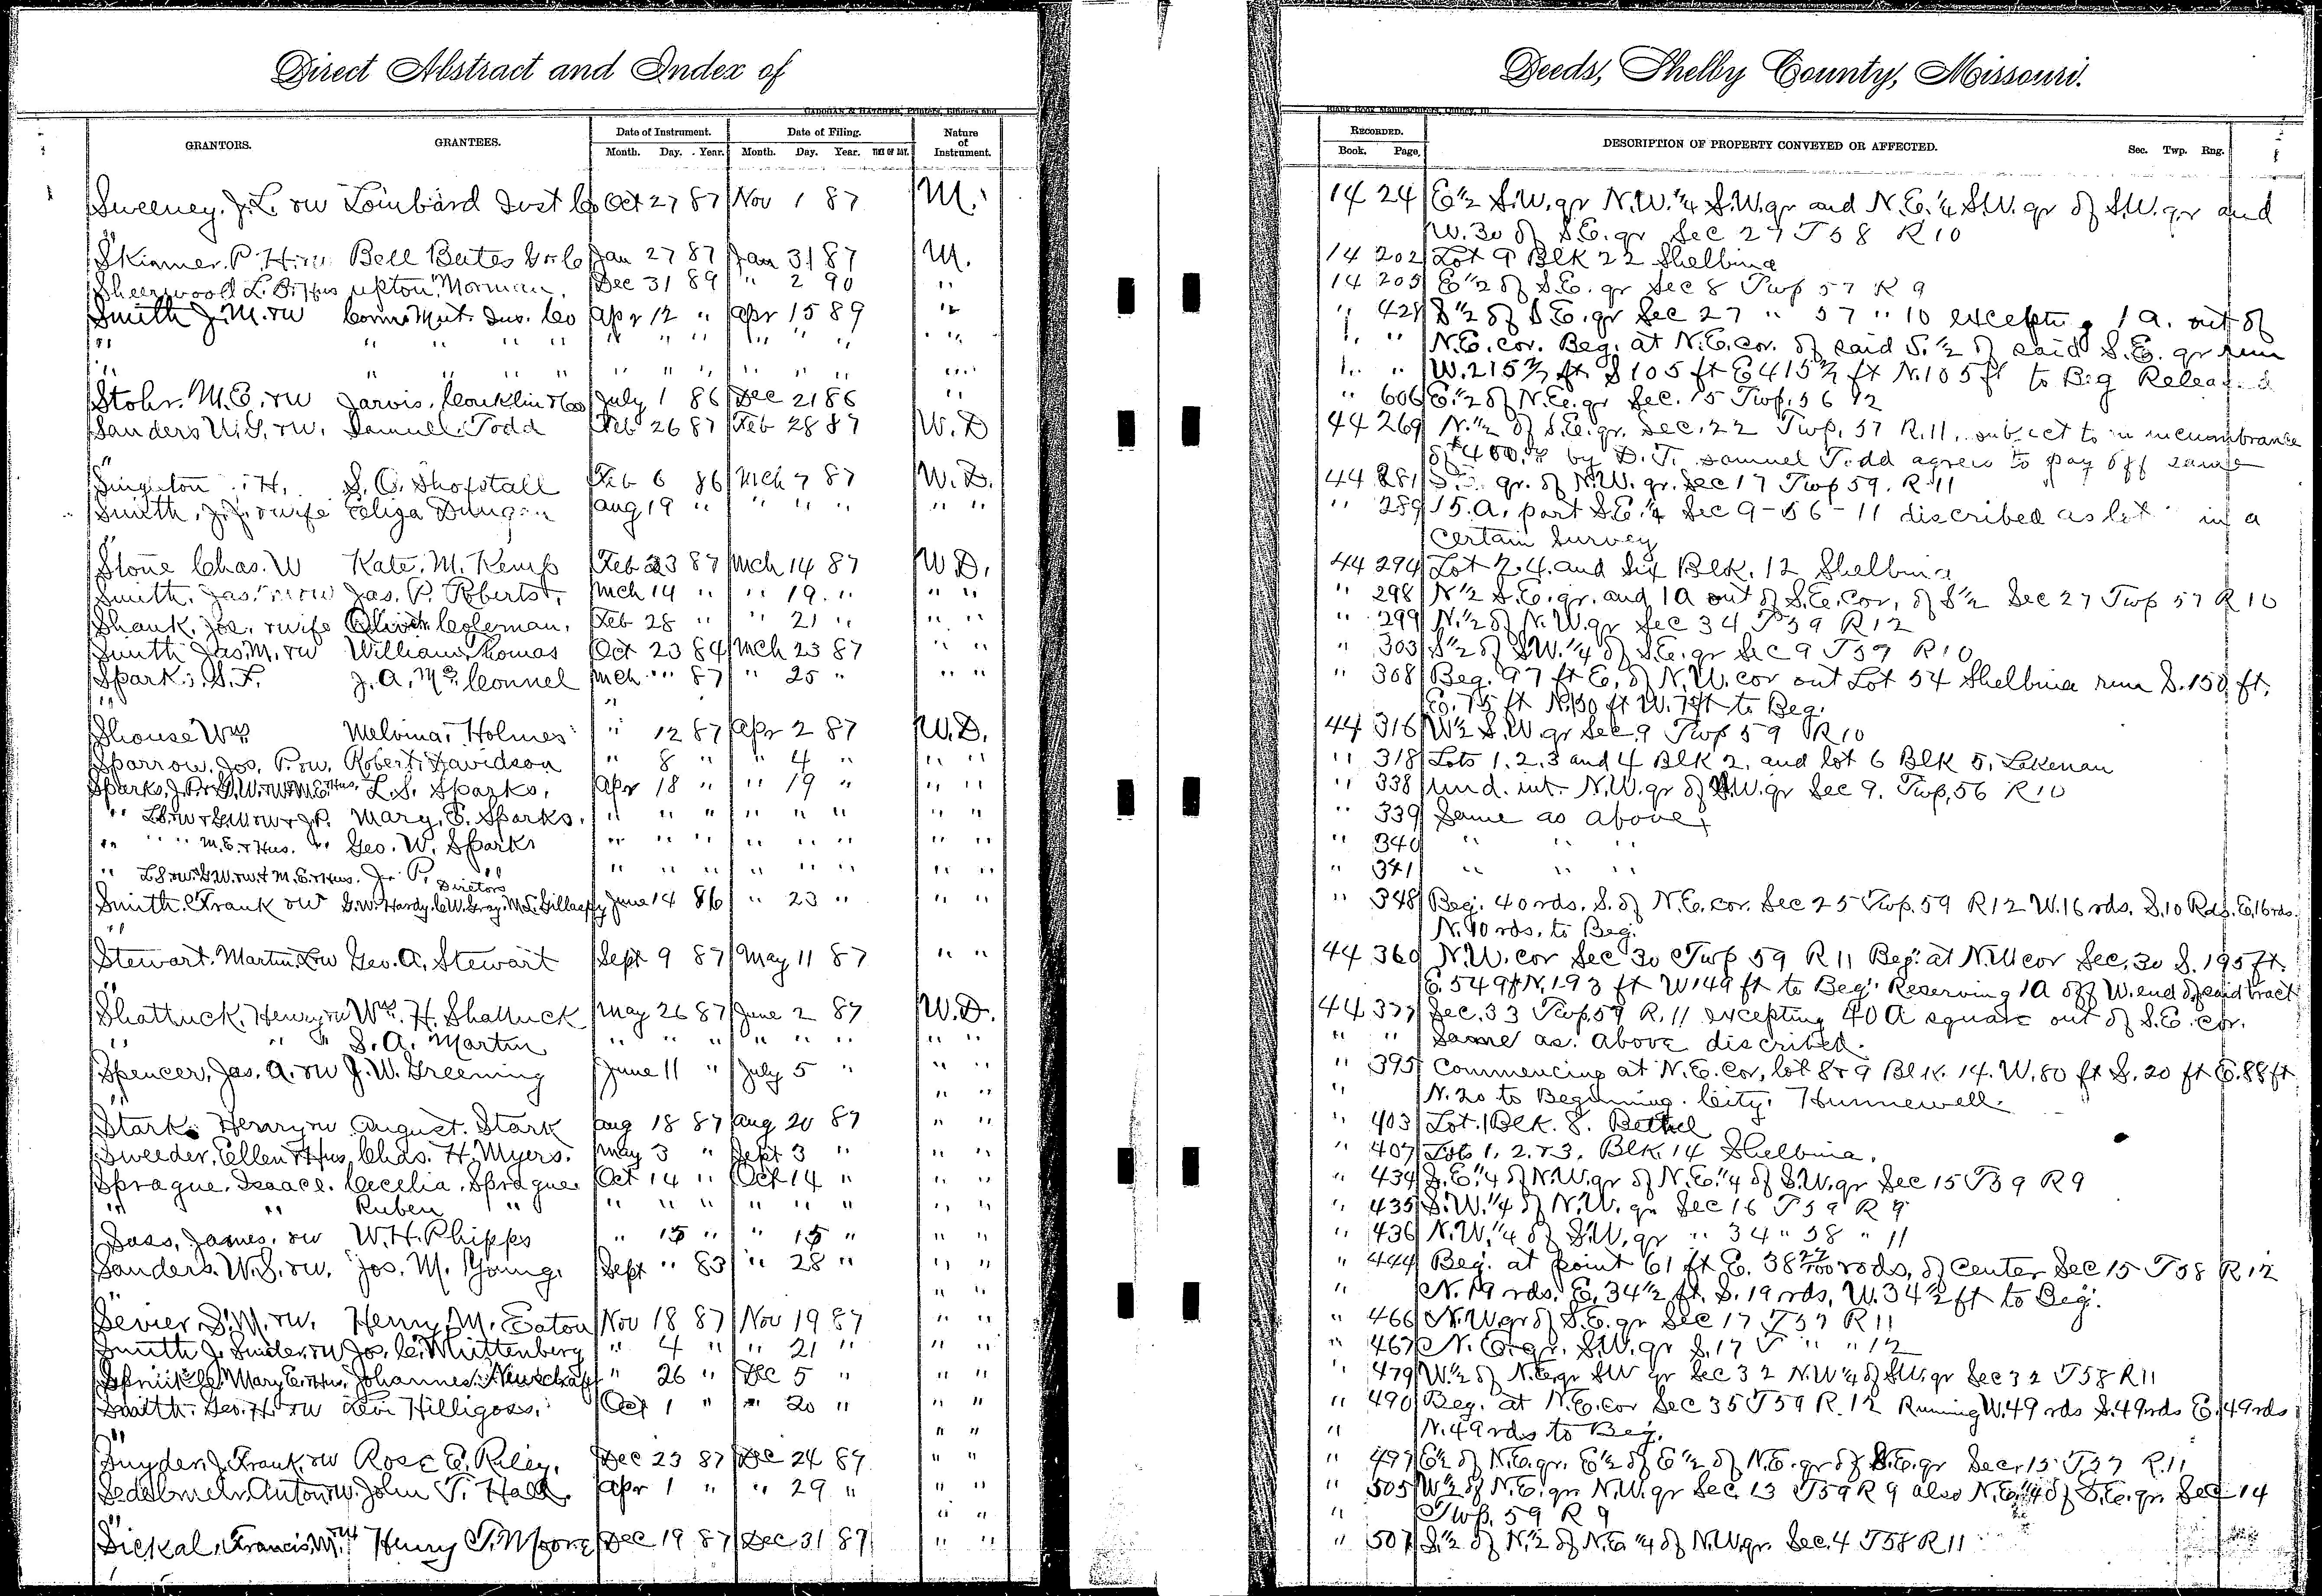 Direct Abstract and Index of Deeds, Shelby County, Missouri.
CADOGAN & HATCHER, Printers, Binders and Blank Book Manufacturers, Quincy, Ill.
GRANTORS. GRANTEES. Date of Instrument. Date of Filing. Nature of Instrument. RECORDED. DESCRIPTION OF PROPERTY CONVEYED OR AFFECTED. Sec. Twp. Rng.
Month. Day. Year. Month. Day. Year. TIME OF DAY. Book. Page.
Sweeney, J. L. rw Lombard Inst Co Oct 27 87 Nov 1 87 M. 14 24 E 1/2 S.W. qr N.W. 1/4 S.W. qr and N.E. 1/4 S.W. qr of S.W. qr and
" W. 30 of S.E. qr Sec 27 T 58 R 10
Skinner P. H. rw Bell Bates & Co Jan 27 87 Jan 31 87 M. 14 202 Lot 9 Blk 22 Shelbina
Sheerwood L. B. & Hus upton Norman. Dec 31 89 " 2 90 " 14 205 E 1/2 of S.E. qr Sec 8 Twp 57 R 9
Smith J. M. rw Conn Mut. Ins. Co apr 12 " apr 15 89 " " 428 S 1/2 of S.E. qr Sec 27 " 57 " 10 1 a. out of
" " " " " " " " " " " " " " N.E. cor. Beg. at N.E. cor. of said S. 1/2 of said S.E. qr run
" " " " " " " " " " " " " " W. 215 ft S 105 ft E 415 ft N. 105 ft to Beg Released
Stohr. M. E. rw Jarvis. Conklin & Co July 1 86 Dec 21 86 " " 606 E. 1/2 of N.E. qr Sec. 15 Twp. 56 12
Sanders W. S. rw. Samuel Todd Feb 26 87 Feb 28 87 W. D 44 269 N. 1/2 of S.E. qr. Sec. 22 Twp. 57 R. 11. subject to incumbrance
" of $400. by D. T. Samuel Todd agrees to pay off same
Singleton H. S. C. Shofstall Feb 6 86 Mch 7 87 W. D. 44 281 qr. of N.W. qr. Sec 17 Twp 59. R 11
Smith, J. J. & wife Eliza Dungan aug 19 " " " " " " " 289 15. a. part S.E. 1/4 Sec 9-56-11 discribed as lot in a
" Certain Survey
Stone Chas. W Kate. M. Kemp Feb 23 87 Mch 14 87 W. D. 44 294 Lot 2. 4. and Six Blk. 12 Shelbina
Smith, Jas. M rw Jas. P. Roberts. Mch 14 " " 19. " " " " 298 N 1/2 S.E. qr. and 1 a out of S.E. cor. of S 1/2 Sec 27 Twp 57 R 10
Shank, Joe, & wife Oliver Coleman. Feb 28 " " 21 " " " " 299 N. 1/2 of N.W. qr Sec 34 T 59 R 12
Smith Jas. M. rw William Thomas Oct 23 84 Mch 23 87 " " " 303 S 1/2 of SW. 1/4 of S.E. qr Sec 9 T 59 R 10
Sparks, S. F. J. A. McConnel Mch " 87 " 25 " " " " 308 Beg. 97 ft E. of N.W. cor out Lot 54 Shelbina run S. 150 ft.
" " E. 75 ft N. 150 ft W. 75 ft to Beg.
Shouse Wm Melvina Holmes " 12 87 apr 2 87 W. D. 44 316 W 1/2 S.W qr Sec. 9 Twp 59 R 10
Sparrow. Jos. P. rw. Robert Davidson " 8 " " 4 " " " " 318 Lots 1. 2. 3 and 4 Blk 2. and lot 6 Blk 5. Lakenan
Sparks, J. P. & G. W. rw & M. E. & Hus. L. S. Sparks. Apr 18 " " 19 " " " " 338 und. int. N.W. qr of S.W. qr Sec 9. Twp. 56 R 10
" L. S. rw & G. W rw & J. P. Mary. E. Sparks. " " " " " " " " " 339 Same as above
" " " M. E. & Hus. " Geo. W. Sparks " " " " " " " " " 340 " " "
" L. S. rw & G. W. rw & M. E. & Hus. J. P. " " " " " " " " " " 341 " " "
Smith. Frank rw G. W. Hardy. C. W. Gray. M. S. Gillaspy Directors June 14 86 " 23 " " " " 348 Beg. 40 rds. S. of N.E. cor. Sec 25 Twp. 59 R 12 W. 16 rds. S. 10 Rds. E. 16 rds.
" N. 10 rds. to Beg.
Stewart. Martin. L rw Geo. A. Stewart Sept 9 87 May 11 87 " " 44 360 N.W. cor Sec 30 Twp 59 R 11 Beg. at N.W cor Sec. 30 S. 195 ft.
" E. 549 ft N. 193 ft W 149 ft to Beg. Reserving 1 A off W. end of said tract
Shattuck, Henry rw Wm. H. Shattuck May 26 87 June 2 87 W. D. 44 377 Sec. 33 Twp. 59 R. 11 excepting 40 A square out of S.E. cor.
" " " S. A. Martin " " " " " " " " " " Same as above discribed.
Spencer, Jas. A. rw J. W. Greening June 11 " July 5 " " " " 395 Commencing at N.E. cor, lot 8 & 9 Blk. 14. W. 80 ft S. 20 ft E. 88 ft
" " " " N. 20 to Beginning. City. Hunnewell.
Stark Henry rw August. Stark aug 18 87 aug 20 87 " " " 403 Lot. 1 Blk. 8. Bethel
Sweeder, Ellen & Hus. Chas. H. Myers. May 3 " Sept 3 " " " " 407 Lots 1. 2. & 3. Blk. 14 Shelbina.
Sprague. Isaac C. Cecelia. Sprague Oct 14 " Oct 14 " " " " 434 S.E. 1/4 of N.W. qr of N.E. 1/4 of S.W. qr Sec 15 T 59 R 9
" " Ruben " " " " " " " " " " 435 S.W. 1/4 of N.W. qr Sec 16 T 59 R 9
Sass, James. rw W. H. Phipps " 15 " " 15 " " " " 436 N.W. 1/4 of S.W. qr " 34 " 58 " 11
Sanders. W. S. rw. Jos. M. Young. Sept " 83 " 28 " " " " 444 Beg. at point 61 ft E. 38 22/100 rods, of center Sec 15 T 58 R 12
" " " N. 19 rds. E. 34 1/2 ft. S. 19 rds, W. 34 1/2 ft to Beg.
Sevier, S. M. rw. Henry M. Eaton Nov 18 87 Nov 19 87 " " " 466 N.W. qr of S.E. qr Sec 17 T 57 R 11
Smith J. Snider. rw Jos. C. Whittenberg " 4 " " 21 " " " " 467 N.E. qr. S.W. qr S. 17 T " " 12
Mary E. & Hus. Johannes " 26 " Dec 5 " " " " 479 W 1/2 of N.E. qr SW qr Sec 32 N.W 1/4 of S.W. qr Sec 32 T 58 R 11
Smith. Geo. H. rw Levi Hilligoss. Oct 1 " " 20 " " " " 490 Beg. at N.E. cor Sec 35 T 59 R. 12 Running W. 49 rds S. 49 rds E. 49 rds
" " " " N. 49 rds to Beg.
Snyder, J. Frank. rw Rose E. Riley. Dec 23 87 Dec 24 87 " " " 497 E 1/2 of N.E. qr. E 1/2 of E 1/2 of N.E. qr of S.E. qr Sec. 15 T 57 R. 11
Anton rw. John T. Hall. Apr 1 " " 29 " " " " 505 W 1/2 of N.E. qr N.W. qr Sec. 13 T 59 R 9 also N.E. 1/4 of S.E. qr. Sec 14
" " " " Twp. 59 R 9
Sickal, Francis M. Henry T. Moore Dec 19 87 Dec 31 87 " " " 507 S. 1/2 of N. 1/2 of N.E 1/4 of N.W. qr. Sec. 4 T 58 R 11